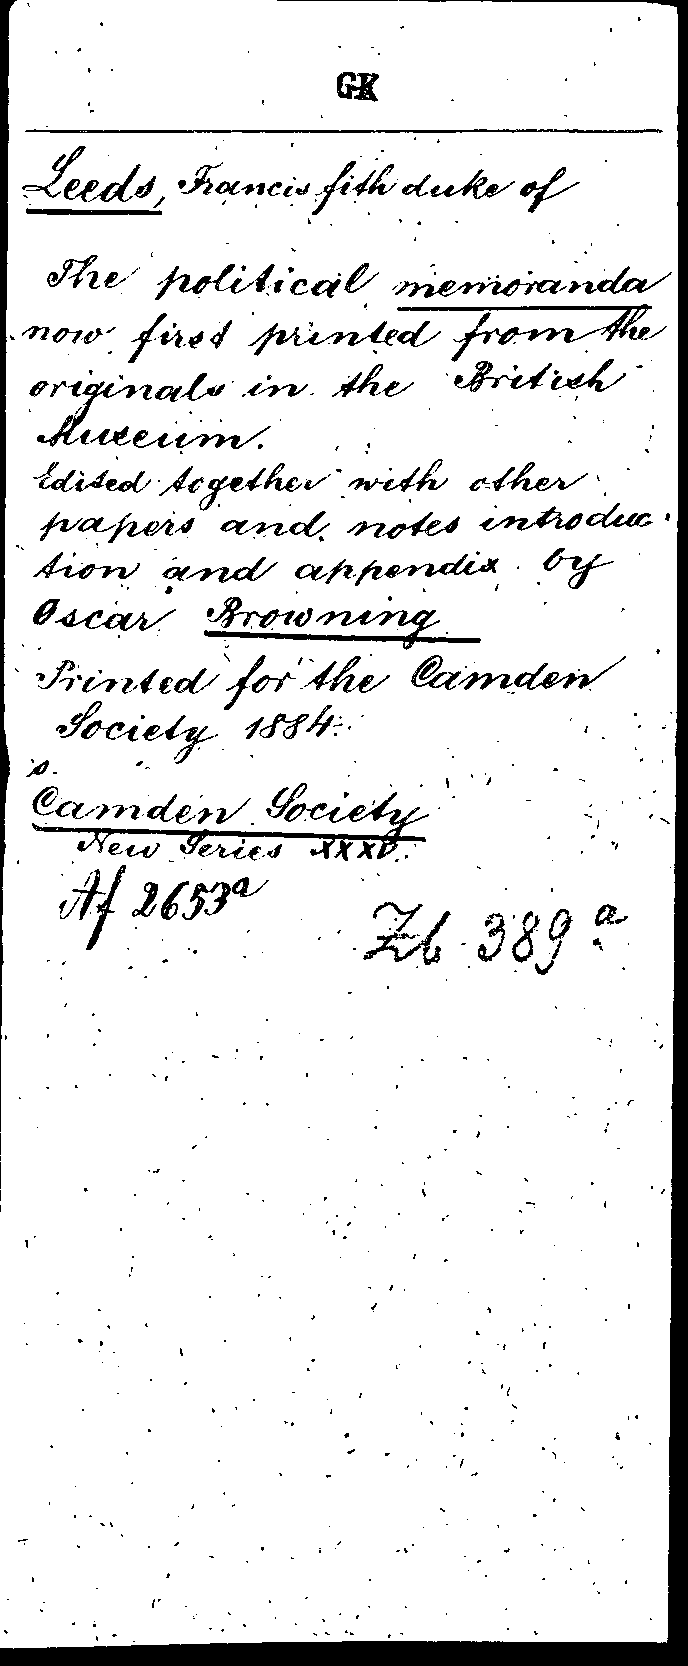 GK
Leeds, Francis fith duke of
The political memoranda
now first printed from the
originals in the British
Museum.
Edited together with other
papers and notes introduc-
tion and appendix by
Oscar Browning
Printed for the Camden
Society 1884.
s.
Camden Society
New Series XXXV.
Af 2653a
Zb 389a